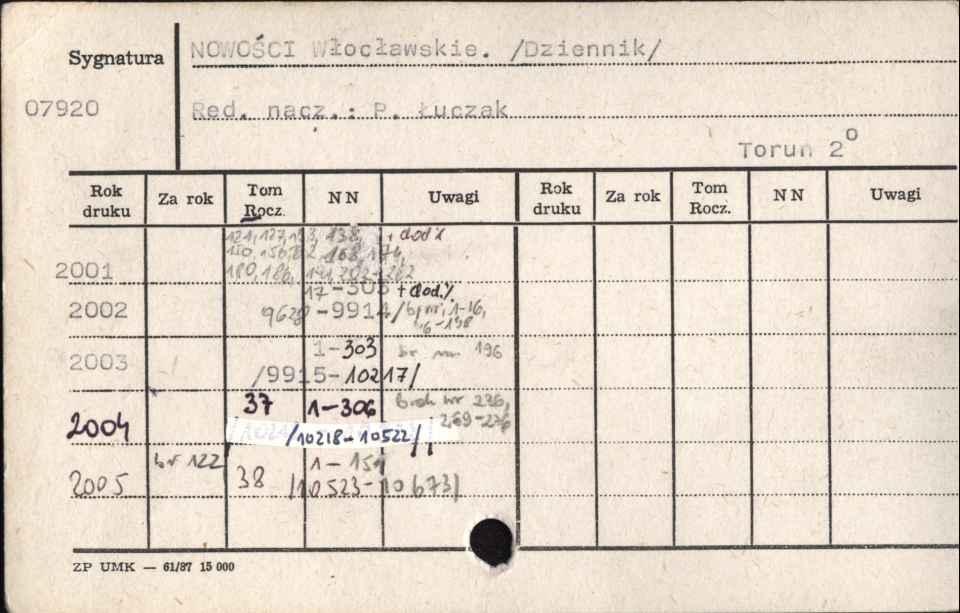 NOWOŚCI Włocławskie. /Dziennik/
Sygnatura
07920
Red. nacz.: P. Łuczak
Torun 2°
Rok druku Za rok Tom Rocz. NN Uwagi Rok druku Za rok Tom Rocz. NN Uwagi
121, 127, 133, 138, + dod
150, 156, 168, 174,
2001 180, 186, 202-
17-303 + dod.
2002 -9914/ 1-16,
1-303 br 196
2003 /9915-10217/
2004 37 1-306 Brak nr 236,
269-276
/10218-10522/
br 122 1-151
2005 38 /10523-10673/
ZP UMK — 61/87 15 000